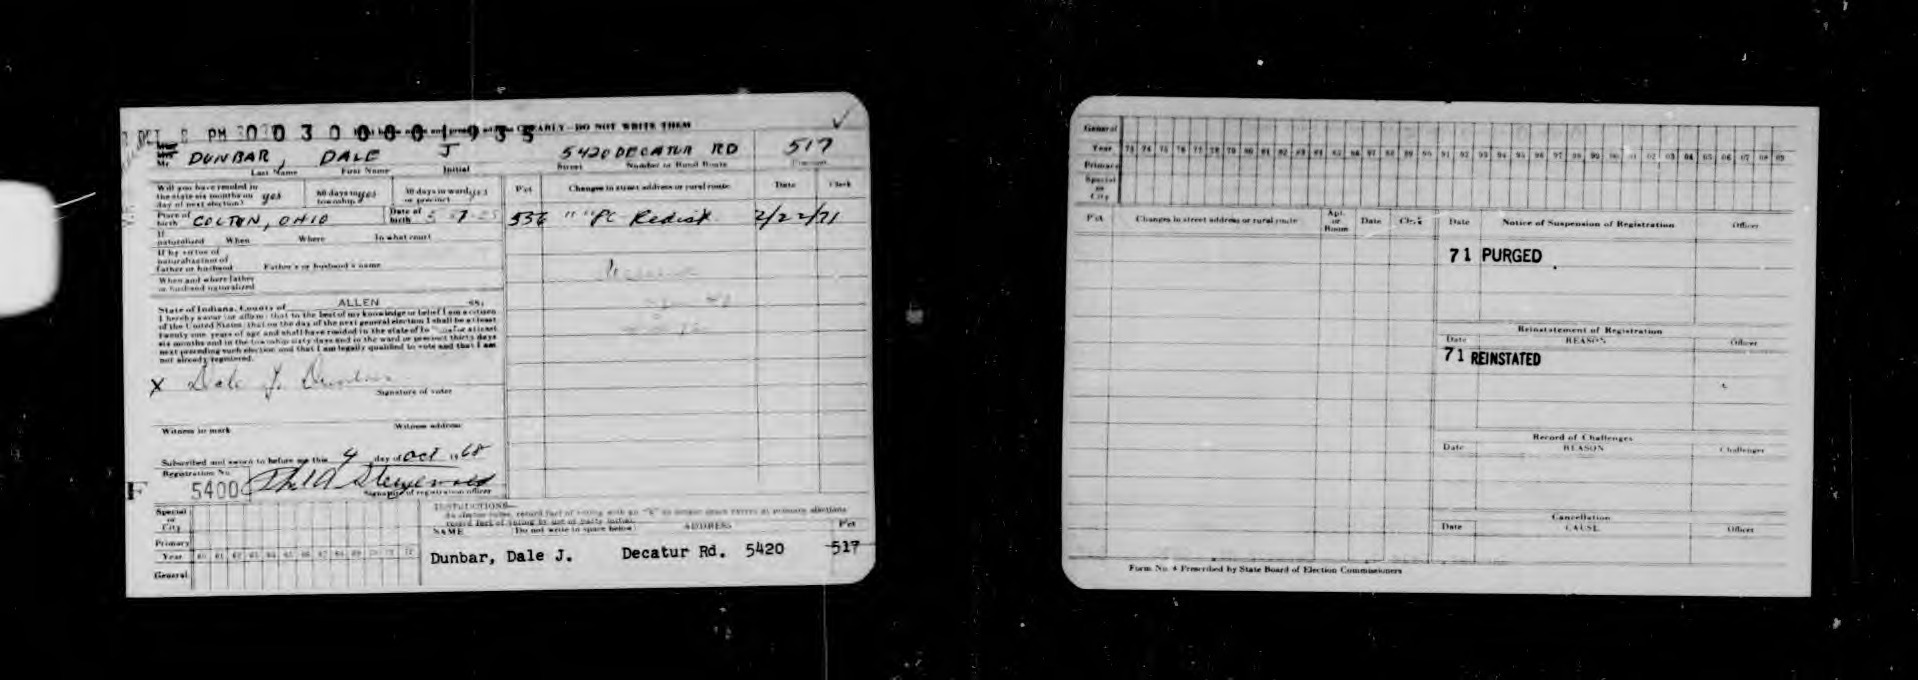 PM 30 0 3 0 0 0 0 1 9 3 5 CLEARLY—DO NOT WRITE THEM
DUNBAR, DALE J 5420 DECATUR RD 517
Last Name First Name Initial Street Number or Rural Route Precinct
Will you have resided in the state six months on day of next election? yes 60 days in township? yes 30 days in ward or precinct yes
Pct Changes in street address or rural route Date Clerk
Place of birth COLTON, OHIO Date of birth
536 " " PC Redist 2/22/71
If naturalized When Where In what court
If by virtue of naturalization of father or husband Father's or husband's name
When and where father or husband naturalized
State of Indiana, County of ALLEN ss:
I hereby swear (or affirm) that to the best of my knowledge or belief I am a citizen
of the United States; that on the day of the next general election I shall be at least
twenty one years of age and shall have resided in the state of Indiana for at least
six months and in the township sixty days and in the ward or precinct thirty days
next preceding such election and that I am legally qualified to vote and that I am
not already registered.
X Dale J. Dunbar
Signature of voter
Witness to mark Witness address
Subscribed and sworn to before me this 4 day of Oct 1968
Registration No.
5400
Signature of registration officer
F
INSTRUCTIONS—
NAME Do not write in space below ADDRESS Pct
Dunbar, Dale J. Decatur Rd. 5420 517
Special or City
Primary
Year 60 61 62 63 64 65 66 67 68 69 70 71 72
General
General
Year 73 74 75 76 77 78 79 80 81 82 83 84 85 86 87 88 89 90 91 92 93 94 95 96 97 98 99 00 01 02 03 04 05 06 07 08 09
Primary
Special or City
Pct Changes in street address or rural route Apt. or Room Date Clerk
Date Notice of Suspension of Registration Officer
71 PURGED
Reinstatement of Registration
Date REASON Officer
71 REINSTATED
Record of Challenges
Date REASON Challenger
Cancellation
Date CAUSE Officer
Form No. 4 Prescribed by State Board of Election Commissioners